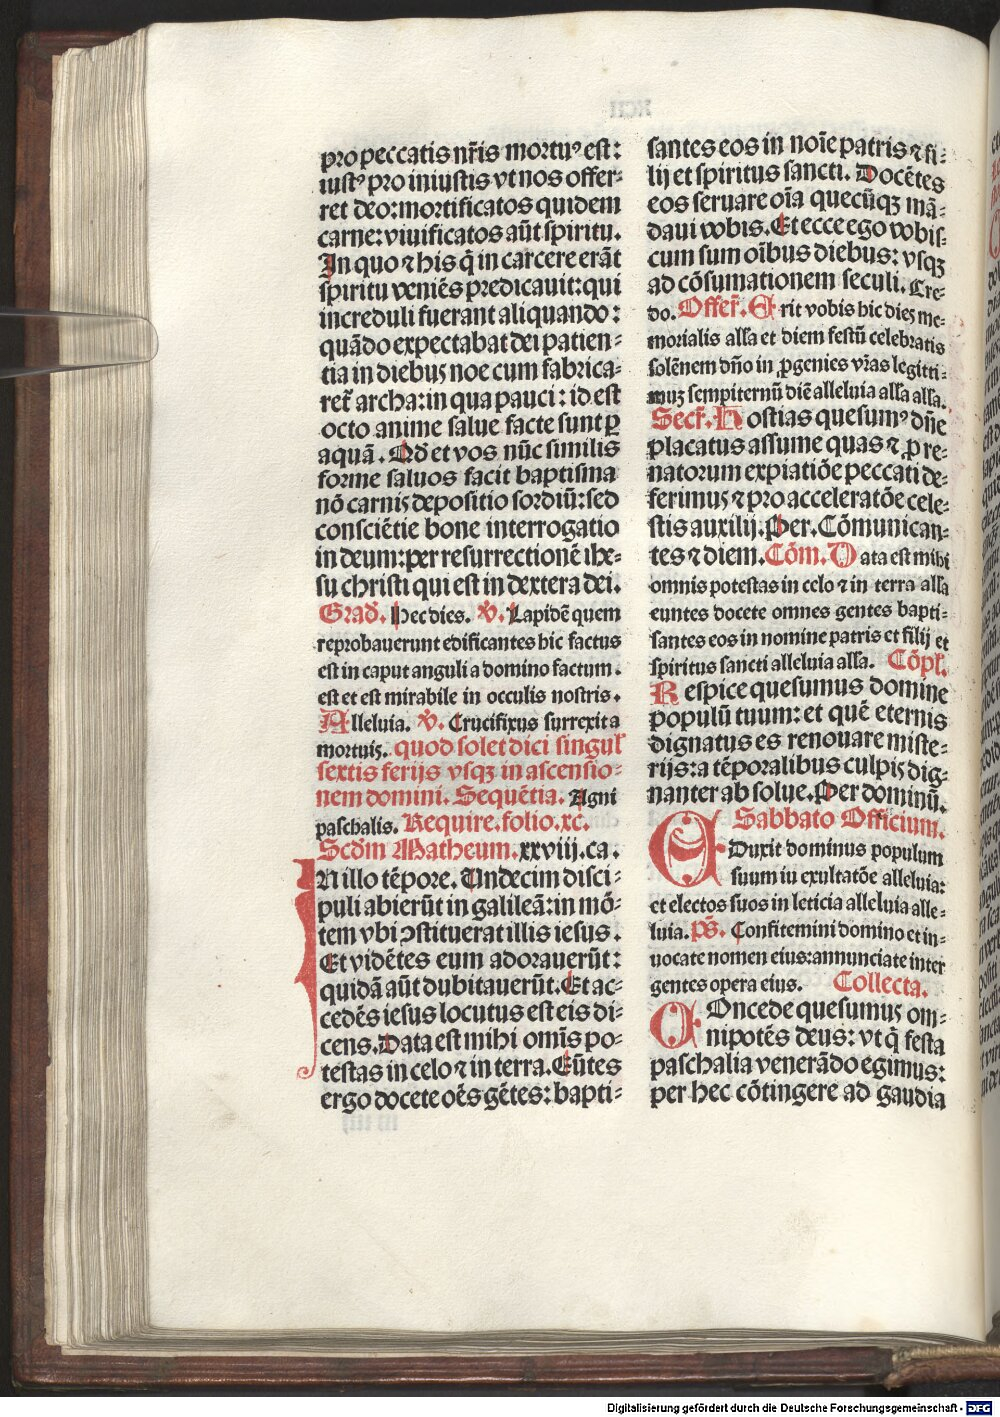 pro peccatis nr̄is mortuꝰ est:
iustꝰ pro iniustis vt nos offer-
ret deo: mortificatos quidem
carne: viuificatos aūt spiritu.
In quo ⁊ his q̄ in carcere erāt
spiritu veniēs predicauit: qui
increduli fuerant aliquando:
quādo expectabat dei patien-
tia in diebus noe cum fabrica-
ret̄ archa: in qua pauci: id est
octo anime salue facte sunt ꝑ
aquā. Qd̄ et vos nūc similis
forme saluos facit baptisma
nō carnis depositio sordiū: sed
consciētie bone interrogatio
in deum: per resurrectionē ihe-
su christi qui est in dextera dei.
Grad̄. Hec dies. ℣. Lapidē quem
reprobauerunt edificantes hic factus
est in caput anguli a domino factum.
est et est mirabile in occulis nostris.
Alleluia. ℣. Crucifixus surrexit a
mortuis. quod solet dici singul̄
sextis ferijs vsqꝫ in ascensio-
nem domini. Sequētia. Agni
paschalis. Require. folio. xc.
Scd̄m Matheum. xxviij. ca.
IN illo tēpore. Undecim disci-
puli abierūt in galileā: in mō-
tem vbi ꝯstituerat illis iesus.
Et vidētes eum adorauerūt:
quidā aūt dubitauerūt. Et ac-
cedēs iesus locutus est eis di-
cens. Data est mihi omīs po-
testas in celo ⁊ in terra. Eūtes
ergo docete oēs gētes: bapti-
santes eos in noīe patris ⁊ fi-
lij et spiritus sancti. Docētes
eos seruare oīa quecūqꝫ mā-
daui vobis. Et ecce ego vobis-
cum sum oībus diebus: vsqꝫ
ad cōsumationem seculi. Cre-
do. Offer̄. Erit vobis hic dies me-
morialis alľa et diem festū celebratis
solēnem dn̄o in ꝓgenies vr̄as legitti-
mus sempiternū diē alleluia alľa alľa.
Secr̄. Hostias quesumꝰ dn̄e
placatus assume quas ⁊ ꝓ re-
natorum expiatiōe peccati de-
ferimus ⁊ pro acceleratōe cele-
stis auxilij. Per. Cōmunican-
tes ⁊ diem. Cōm. Data est mihi
omnis potestas in celo ⁊ in terra alľa
euntes docete omnes gentes bapti-
santes eos in nomine patris et filij et
spiritus sancti alleluia alľa. Cōpľ.
Respice quesumus domine
populū tuum: et quē eternis
dignatus es renouare miste-
rijs: a tēporalibus culpis dig-
nanter ab solue. Per dominū.
Sabbato Officium.
EDuxit dominus populum
suum in exultatōe alleluia:
et electos suos in leticia alleluia alle-
luia. ps̄. Confitemini domino et in-
uocate nomen eius: annunciate inter
gentes opera eius. Collecta.
COncede quesumus om-
nipotēs deus: vt q̄ festa
paschalia venerādo egimus:
per hec cōtingere ad gaudia
Digitalisierung gefördert durch die Deutsche Forschungsgemeinschaft - DFG